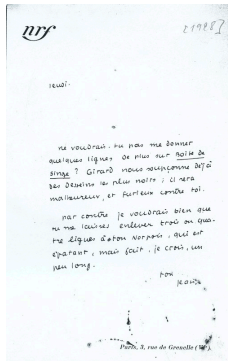 nrf
[1928]
jeudi.
ne voudrais-tu pas me donner
quelques lignes de plus sur Boîte de
singe ? Girard nous soupçonne déjà
des desseins les plus noirs ; il sera
malheureux, et furieux contre toi.
par contre je voudrais bien que
tu me laisses enlever trois ou qua-
tre lignes à ton Norpois, qui est
épatant, mais fait, je crois, un
peu long.
ton
Jean
Paris, 3, rue de Grenelle (VIe).